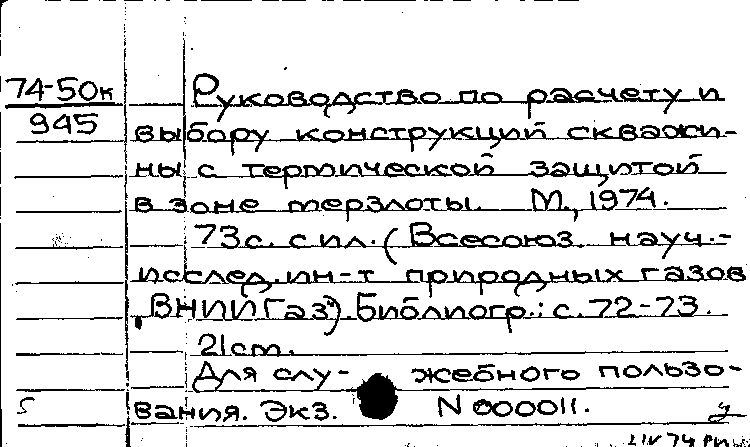 74-50к
945
Руководство по расчету и
выбору конструкций скважи-
ны с термической защитой
в зоне мерзлоты. М., 1974.
73с. с ил. (Всесоюз. науч.-
исслед. ин-т природных газов
"ВНИИГаз"). Библиогр.: с. 72-73.
21см.
Для слу- жебного пользо-
вания. Экз. N 000011.
5